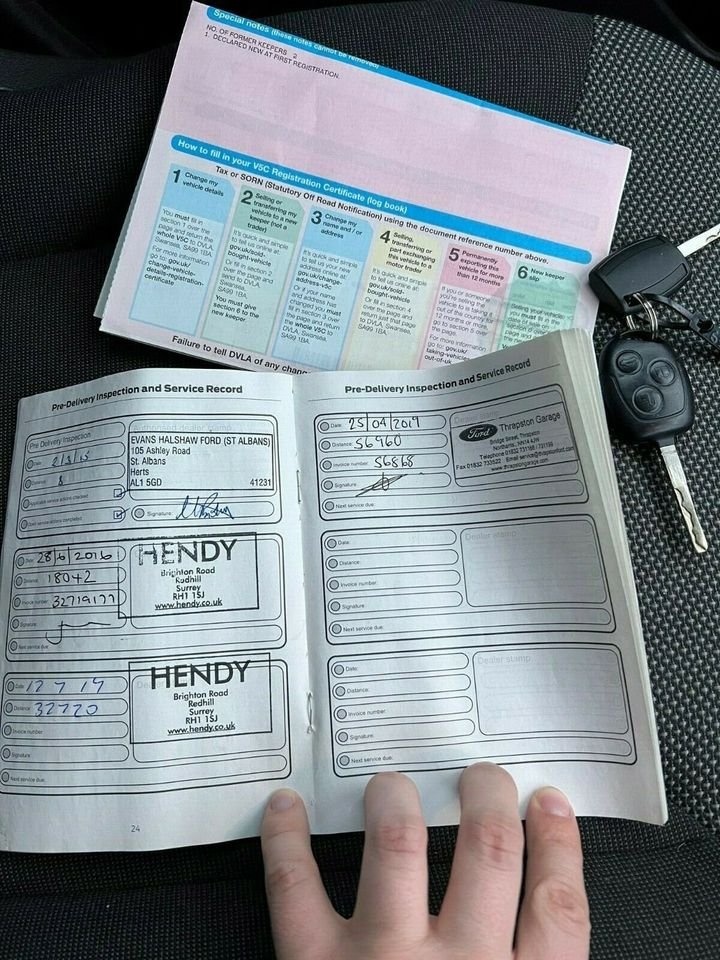 Special notes (these notes cannot be removed)
NO. OF FORMER KEEPERS 2
1. DECLARED NEW AT FIRST REGISTRATION.
How to fill in your V5C Registration Certificate (log book)
Tax or SORN (Statutory Off Road Notification) using the document reference number above.
1 Change my
vehicle details
You must fill in
section 1 over the
page and return the
whole V5C to DVLA,
Swansea,
SA99 1BA.
For more information
go to: gov.uk/
change-vehicle-
details-registration-
certificate
2 Selling or
transferring my
vehicle to a new
keeper (not a
trader)
It's quick and simple
to tell us online at:
gov.uk/sold-
bought-vehicle
Or fill in section 2
over the page and
send to DVLA,
Swansea,
SA99 1BA.
You must give
section 6 to the
new keeper
3 Change my
name and / or
address
It's quick and simple
to tell us your new
address online at:
gov.uk/change-
address-v5c
Or if your name
and address has
changed you must
fill in section 3 over
the page and return
the whole V5C to
DVLA, Swansea,
SA99 1BA.
4 Selling,
transferring or
part exchanging
this vehicle to a
motor trader
It's quick and simple
to tell us online at:
gov.uk/sold-
bought-vehicle
Or fill in section 4
over the page and
return just that page
to DVLA, Swansea,
SA99 1BA.
5 Permanently
exporting this
vehicle for more
than 12 months
If you or someone
you're selling the
vehicle to is taking it
out of the country for
12 months or more,
go to section 5 over
the page.
For more information
go to: gov.uk/
taking-vehicles-
out-of-uk
6 New keeper
slip
Failure to tell DVLA of any
Pre-Delivery Inspection and Service Record
Pre Delivery Inspection
Date:
Distance: 8
Applicable service actions checked
Open service actions completed
Authorised dealer stamp
EVANS HALSHAW FORD (ST ALBANS)
105 Ashley Road
St. Albans
Herts
AL1 5GD 41231
Signature:
Date: 28/6/2016
Distance: 18042
Invoice number: 32719177
Signature:
Next service due:
HENDY
Brighton Road
Redhill
Surrey
RH1 1SJ
www.hendy.co.uk
Date: 12 7 17
Distance: 32720
Invoice number:
Signature:
Next service due:
HENDY
Brighton Road
Redhill
Surrey
RH1 1SJ
www.hendy.co.uk
24
Pre-Delivery Inspection and Service Record
Date: 25/04/2019
Distance: 56960
Invoice number: 56868
Signature:
Next service due:
Dealer stamp
Ford Thrapston Garage
Bridge Street, Thrapston
Northants. NN14 4JW
Telephone 01832 731166 / 731159
Fax 01832 733522 Email service@thrapstonford.com
www.thrapstongarage.com
Date:
Distance:
Invoice number:
Signature:
Next service due:
Dealer stamp
Date:
Distance:
Invoice number:
Signature:
Next service due:
Dealer stamp